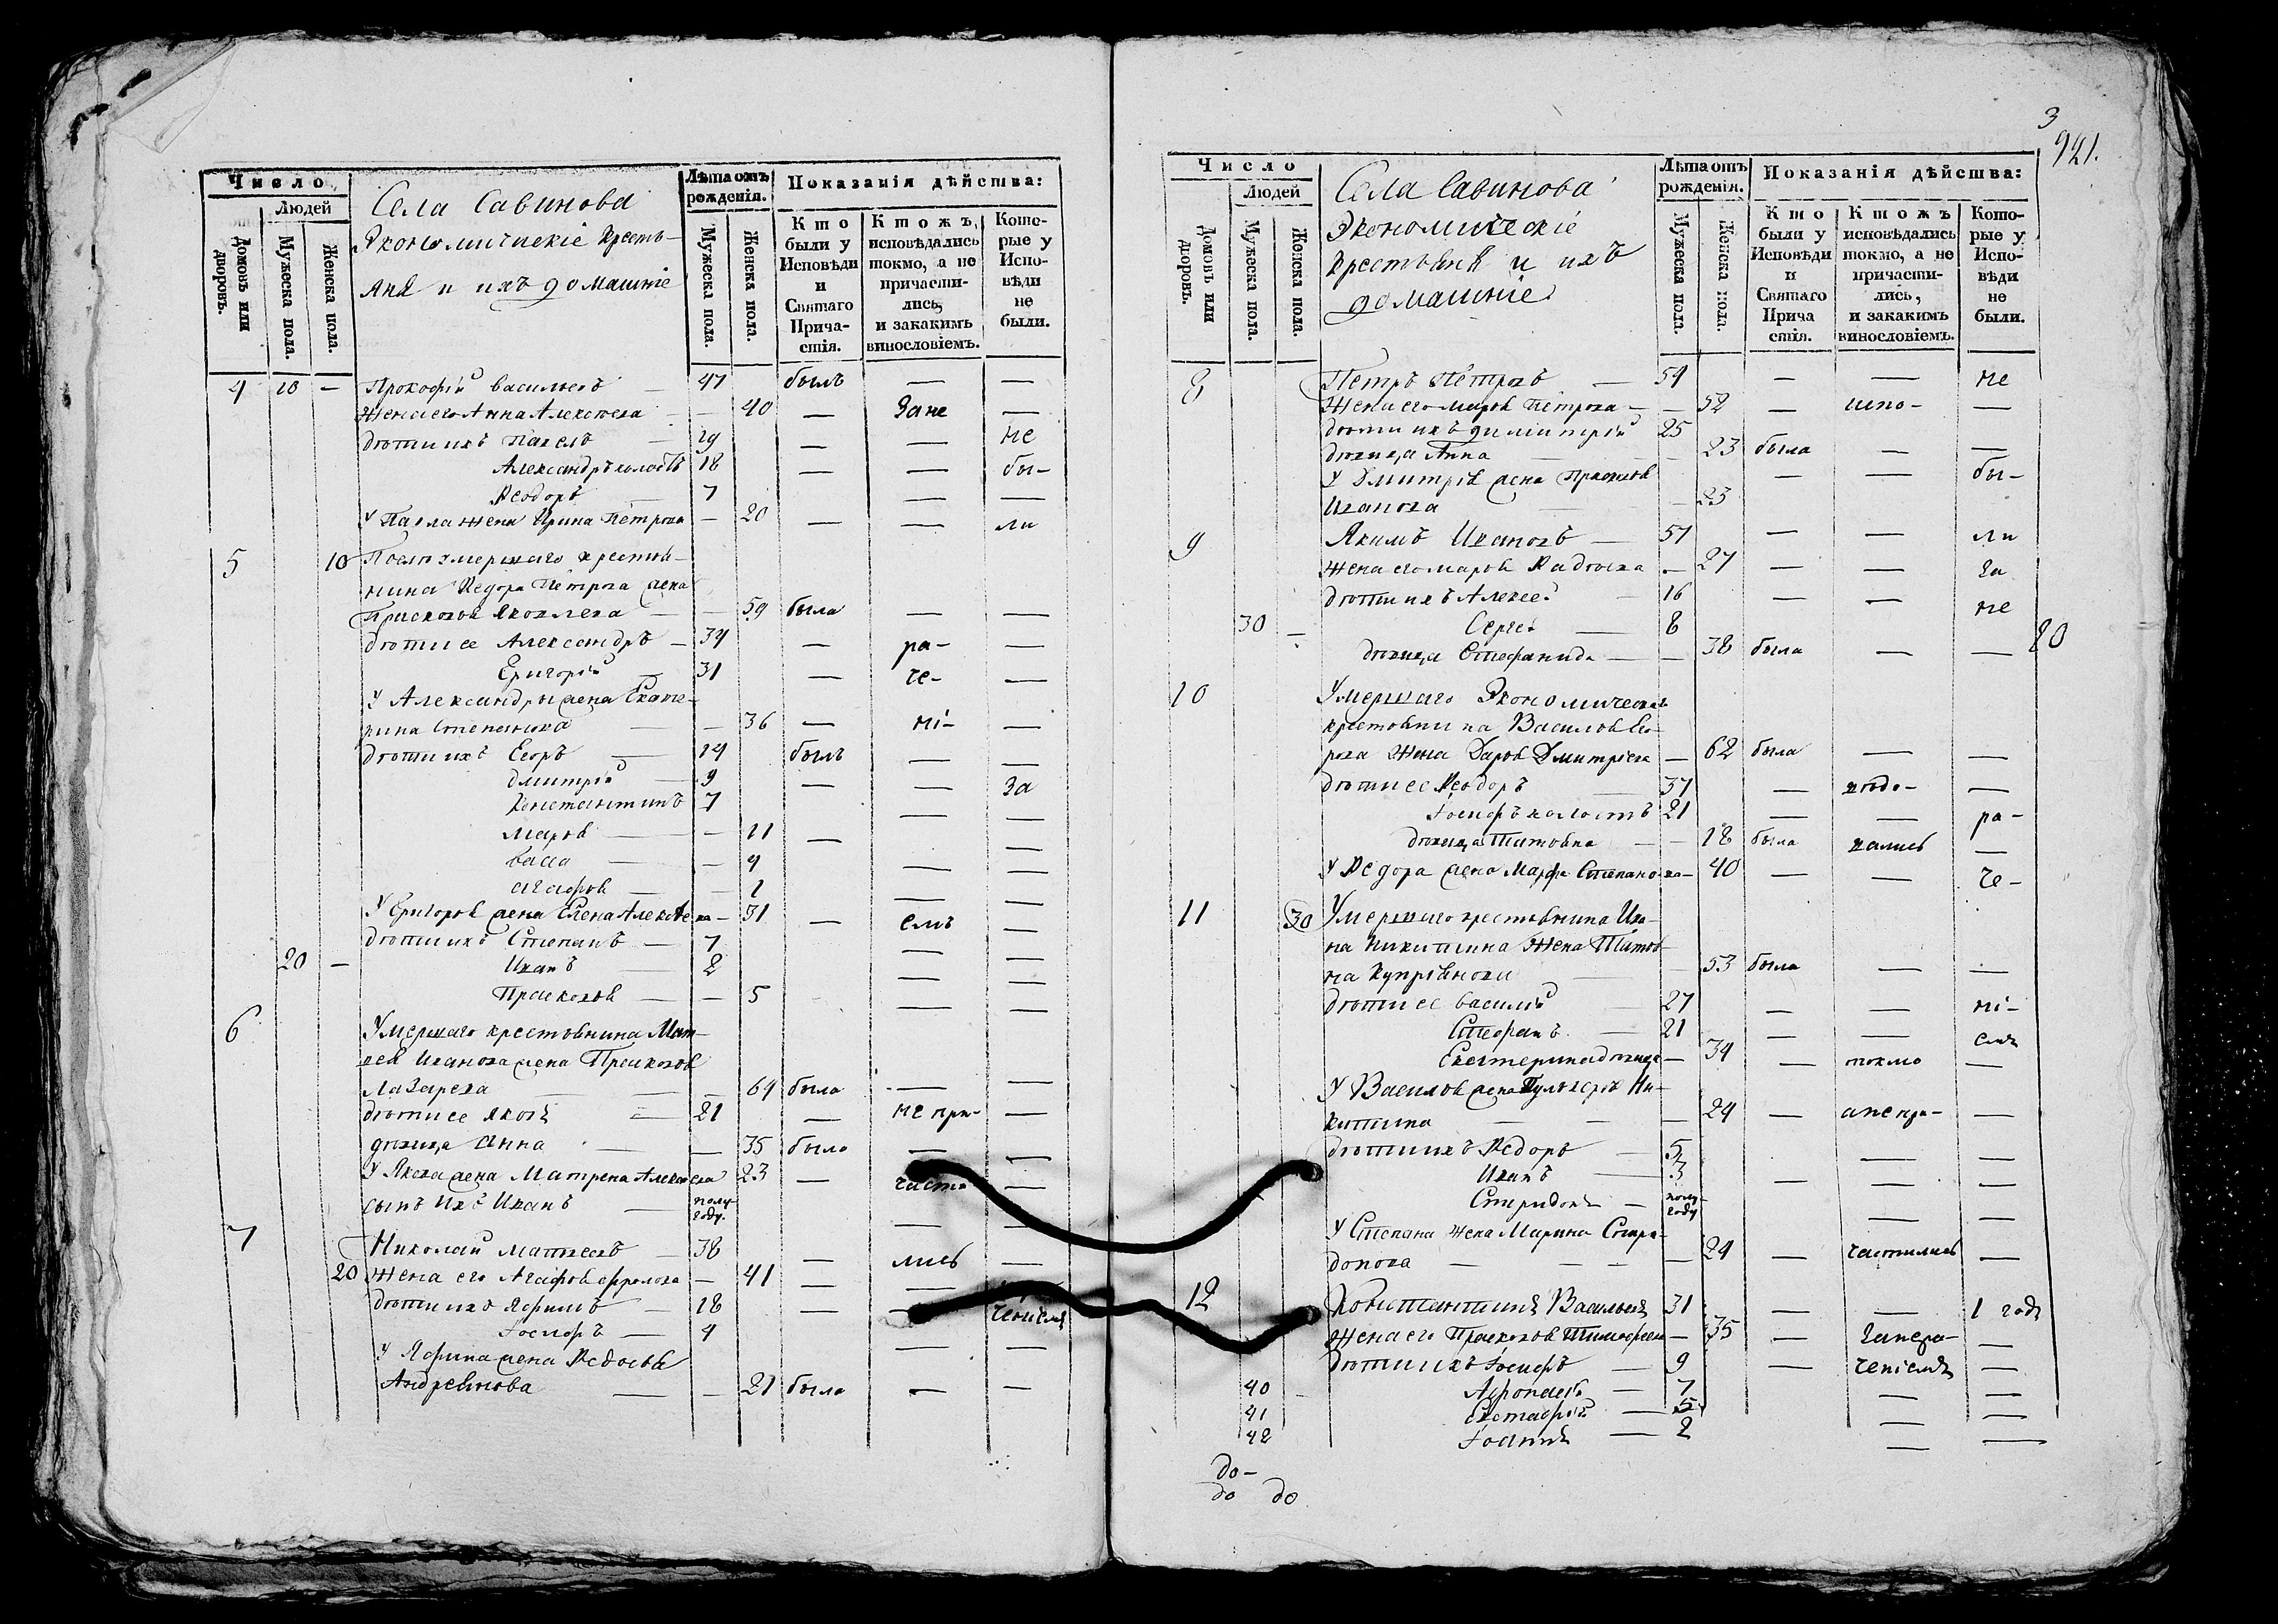 Число
Людей
Домовъ или дворовъ.
Мужеска пола.
Женска пола.
Села Савинова
Экономическіе кресть-
яня и ихъ домашніе
Лѣта отъ рожденія.
Мужеска пола.
Женска пола.
Показанія дѣйства:
Кто были у Исповѣди и Святаго Прича-стія.
Ктожъ исповѣдались токмо, а не причасти-лись, и закакимъ винословіемъ.
Кото-рые у Испо-вѣди не были.
4 10 — Прокофій Васильевъ — 47 былъ — —
Жена его Анна Алексѣева — — 40 — Зане —
дѣти ихъ Павелъ — 19 — — не
Александръ холостъ 18 — — бы-
Ѳеодоръ — 7 — —
У Павла жена Ирина Петрова — 20 — — ли
5 10 Послѣ умершаго крестья-
нина Ѳедора Петрова жена
Прасковья Яковлева — — 59 была — —
дѣти ее Александръ — 34 — ра- —
Григорій — 31 — че- —
У Александры жена Екате-
рина Степанова — — 36 — ні- —
дѣти ихъ Егоръ — 14 былъ — —
Дмитрій — 9 — — За
Константинъ 7 — —
Марья — — 11 — —
Васа — — 4 — —
Агафья — — 1 — —
У Григорья жена Елена Алексѣева — 31 — емъ —
дѣти ихъ Степанъ — 7 — —
20 — Иванъ — 2 — —
Прасковья — — 5 — —
6 Умершаго крестьянина Мат-
вея Иванова жена Прасковья
Лазарева — — 64 была — —
дѣти ее Яковъ — 21 — не при- —
дѣвица Анна — — 35 была — —
У Якова жена Матрена Алексѣева 23 — часта —
сынъ ихъ Иванъ — полу-
году. — —
7 Николай Матвеевъ — 38 — лись —
20 Жена его Агафья Фролова — 41 — — —
дѣти ихъ Яфимъ — 18 — — ченіемъ
Іосифъ — 4 — —
У Яфима жена Ѳедосья
Андреянова — — 21 была — —
3
921.
Число
Людей
Домовъ или дворовъ.
Мужеска пола.
Женска пола.
Села Савинова
Экономическіе
крестьяня и ихъ
домашніе
Лѣта отъ рожденія.
Мужеска пола.
Женска пола.
Показанія дѣйства:
Кто были у Исповѣди и Святаго Прича стія.
Ктожъ исповѣдались токмо, а не причасти-лись, и закакимъ винословіемъ.
Кото-рые у Испо-вѣди не были.
8 Петръ Петровъ — 54 — — не
Жена его Марья Петрова — — 52 — испо- —
дѣти ихъ Димитрій 25
дѣвица Анна — 23 была — —
У Дмитрія жена Прасковья — — бы-
Иванова — 23
9 Якимъ Ивановъ — 57 — — ли
Жена его Марья Фадѣева — 27 — — за
дѣти ихъ Алексей — 16 — — не
30 — Сергей — 8
дѣвица Стефанида — — 38 была — — 20
10 Умершаго Экономическаго
крестьянина Василья Его-
рова жена Дарья Дмитріева — 62 была — —
дѣти ее Ѳеодоръ — 37 — вѣда- —
Іосифъ холостъ 21 — — ра-
дѣвица Татьяна — — 18 была вались —
У Ѳедора жена Марфа Степанова — 40 — — че-
11 30 Умершаго крестьянина Ива-
на Никитина Жена Татья-
на Купріянова — 53 была — —
дѣти ее Василій — 27 — — ні-
Стефанъ — 21 — — емъ
Екатерина дѣвица — 34 — токмо —
У Василья жена Пульхерія Ни-
китина — — — 24 — а не при- —
дѣти ихъ Ѳедоръ — 5 — —
Иванъ — 3 — — —
Спиридонъ — полу-
году — —
У Степана жена Марина Спири-
донова — — — 24 — частились —
12 Константинъ Васильевъ 31 — — 1 годъ
Жена его Прасковья Тимофеева — 35 — Занера- —
дѣти ихъ Іосифъ — 9 — ченіемъ —
40 — Афонасій — 7 — —
41 Евстафій — 5 — —
42 Іоаннъ — 2 — —
до-
до до